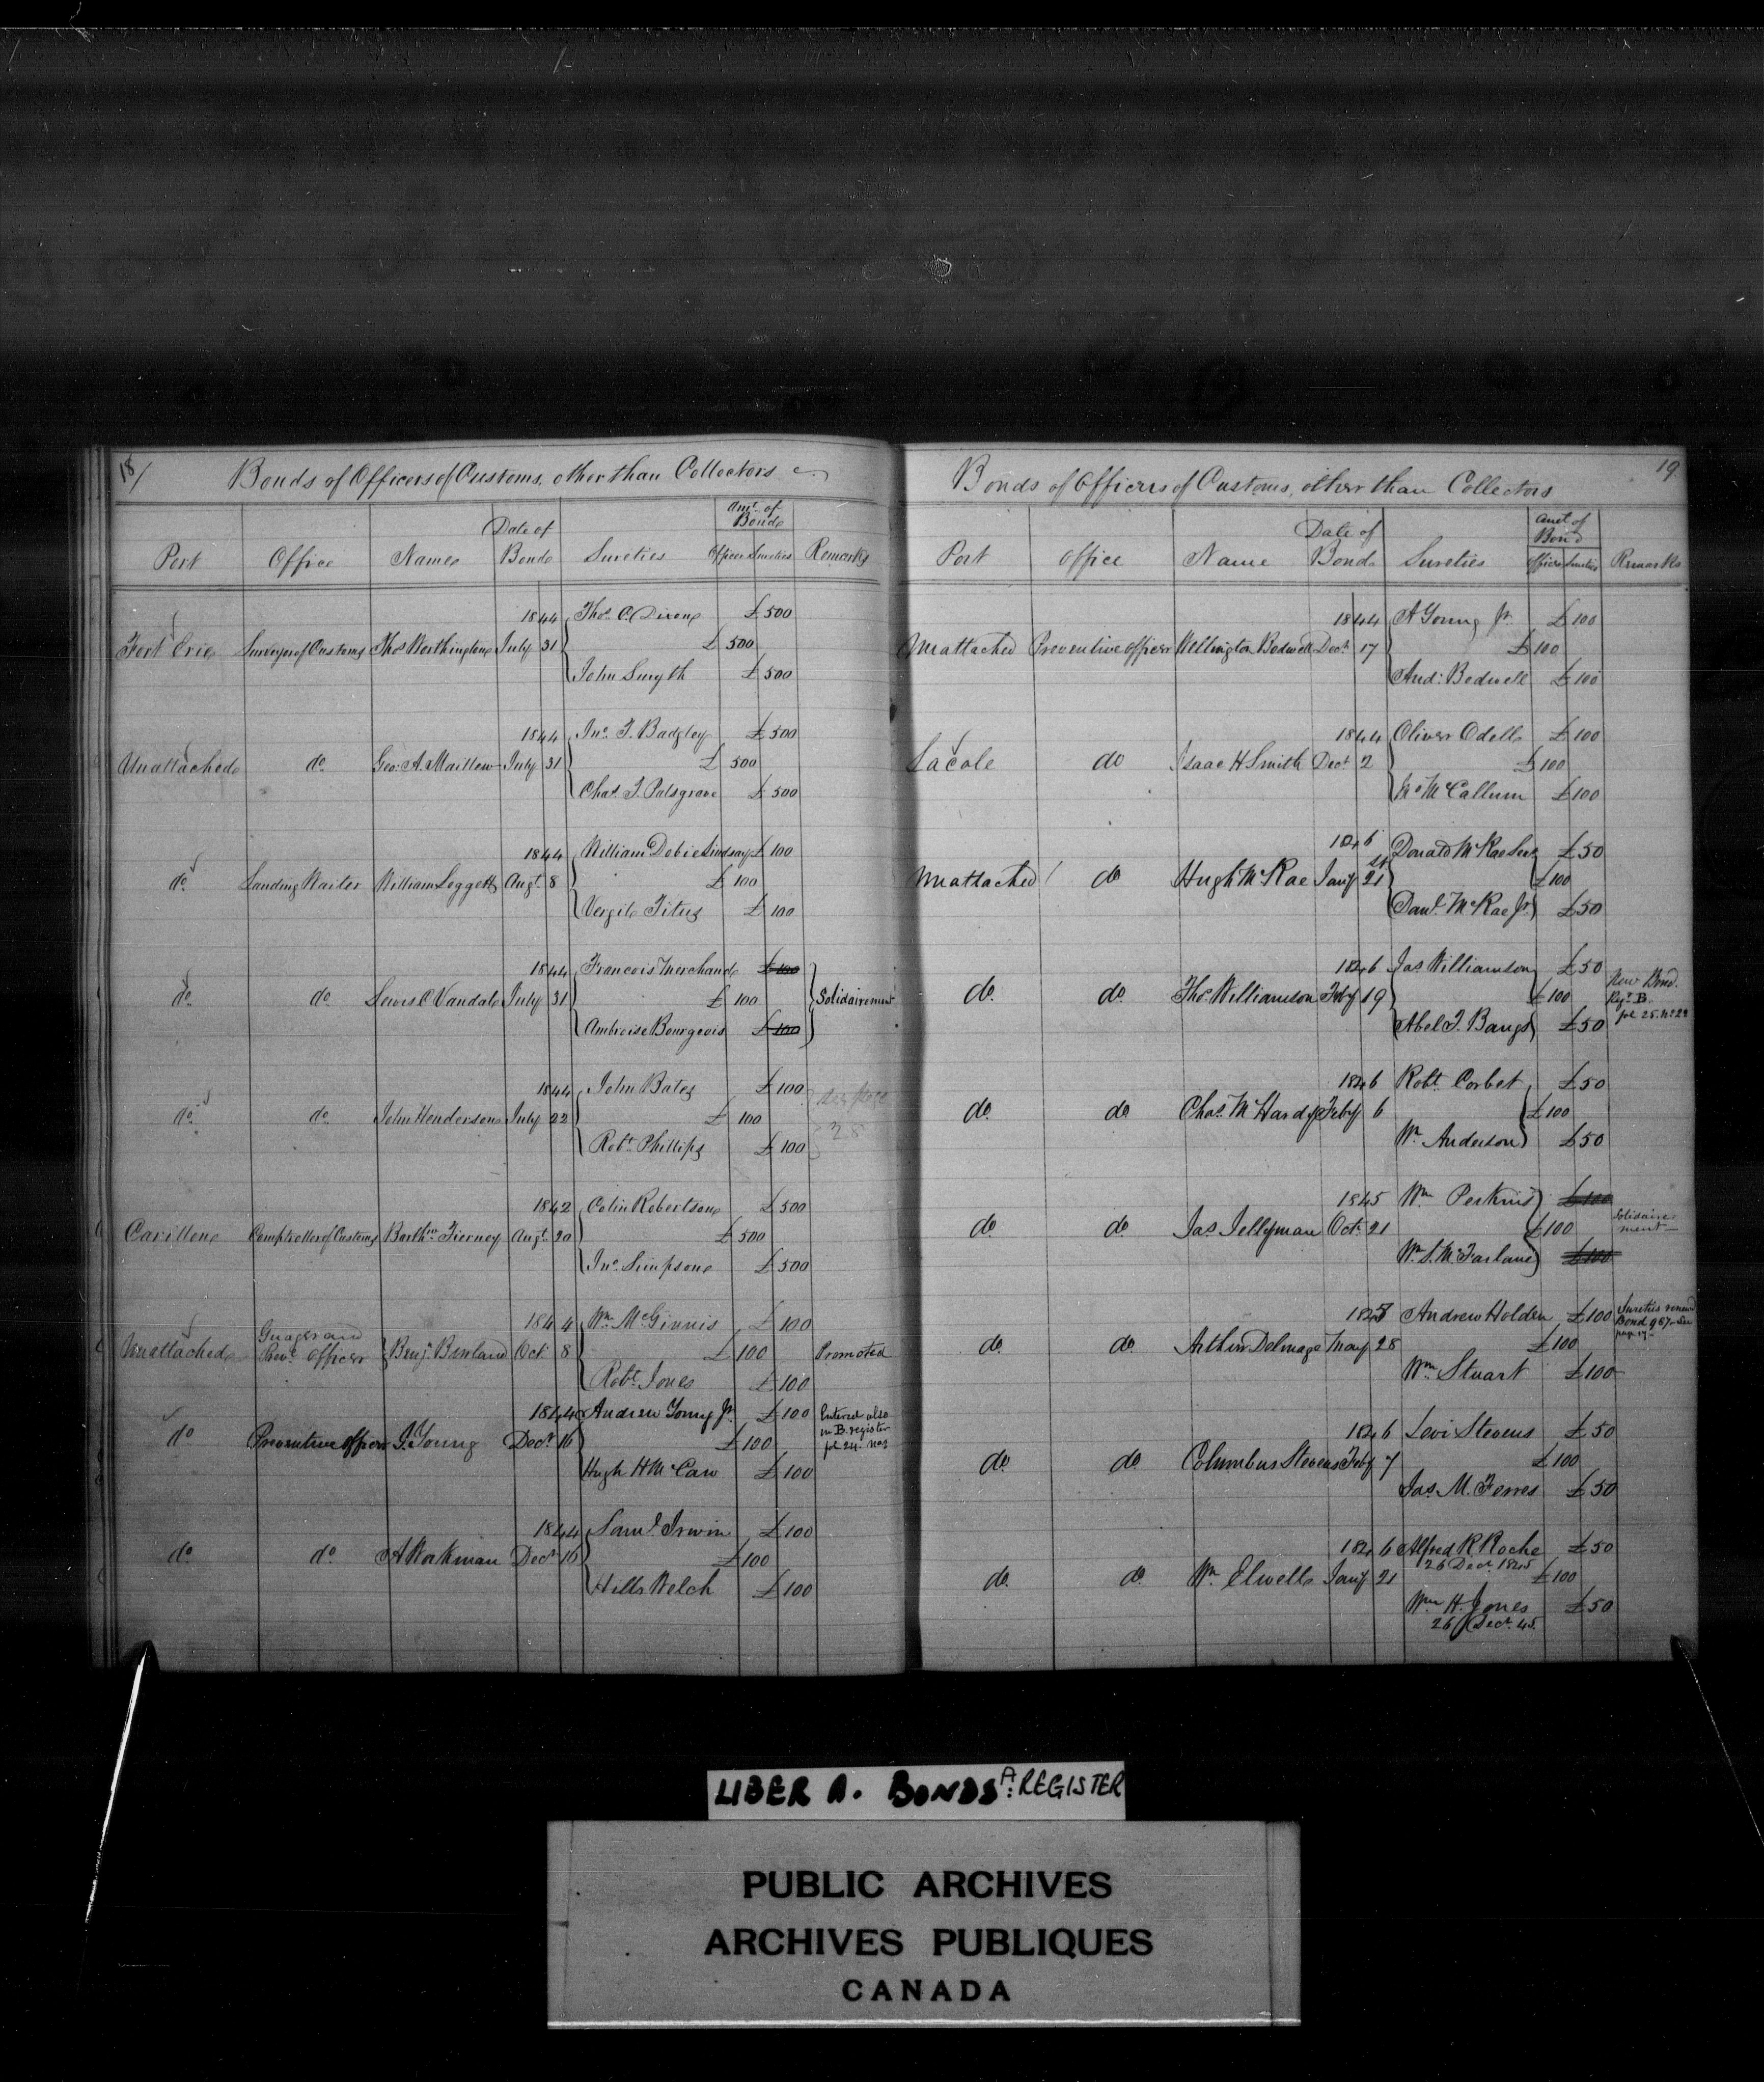 18/
Bonds of Officers of Customs, other than Collectors
Port Office Name Date of Bond Sureties Amt. of Bond Officer Sureties Remarks
1844 Thos. C. Dixon £500
Fort Erie Surveyor of Customs Thos Worthington July 31 £500
John Smyth £500
1844 Jno. T. Badgley £500
Unattached do. Geo. A. Maitlew July 31 £500
Chas. T. Palsgrave £500
1844 William Dobie Lindsay £100
do Landing Waiter William Leggett Augt. 8 £100
Vergile Titus £100
1844 Francois Merchand £100
do. do. Lewis C Vandal July 31 £100 Solidairement
Ambroise Bourgeois £100
1844 John Bates £100
do. do. John Henderson July 22 £100 28
Robt. Phillips £100
1842 Colin Robertson £500
Carillon Comptroller of Customs Barthw. Tierney Augt. 20 £500
Jno. Simpson £500
1844 Wm. McGinnis £100
Unattached Guager and Prevt. officer Benj. Burland Oct. 8 £100 Promoted
Robt. Jones £100
1844 Andrew Young Jr. £100 Entered also
do Preventive officer J. Young Decr. 16 £100 in B. register fol 24. No 2
Hugh H McCaw £100
1844 Saml. Irwin £100
do. do. A Workman Decr. 16 £100
Hills Welch £100
19.
Bonds of Officers of Customs, other than Collectors
Port Office Name Date of Bond Sureties Amt of Bond Officer Sureties Remarks
1844 A Young Jr. £100
Unattached Preventive officer Wellington Bodwell Decr. 17 £100
And: Bodwell £100
1844 Oliver Odell £100
Lacole do Isaac H Smith Decr 2 £100
McCallum £100
1846 Donald McRae Senr £50
Unattached do Hugh McRae Jany 21st £100
Danl. McRae Jr. £50
1846 Jas Williamson £50
do. do. Thos. Williamson Feby 19 £100 New Bond. Regr. B. fol 25. No 22
Abel T. Bangs £50
1846 Robt. Corbet £50
do. do. Chas. McHardy Feby 6 £100
Wm. Anderson £50
1845 Wm Perkins £100
do. do. Jas. Jellyman Oct. 21 £100 Solidairement
Wm. S. McFarlane £100
1843 Andrew Holden £100 Sureties renewd
do. do. Arthur Delmage May 28 £100 Bond 967. See page 17
Wm Stuart £100
1846 Levi Stevens £50
do. do. Columbus Stevens Feby 7 £100
Jas. M. Ferres £50
1846 Alfred R Roche £50
26 Decr. 1845
do. do. Wm. Elwell Jany 21 £100
Wm H. Jones £50
26 Decr. 45.
LIBER A. BONDS A: REGISTER
PUBLIC ARCHIVES
ARCHIVES PUBLIQUES
CANADA